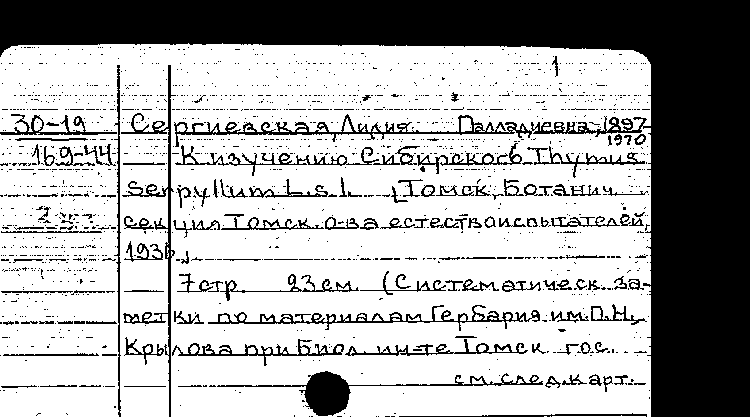 1
30-19 Сергиевская, Лидия Палладиевна, 1897
1970
169-44 К изучению Сибирского Thymus
serpyllum L. s. l. [Томск, Ботанич.
секция Томск. о-ва естествоиспытателей,
1936.]
7 стр. 23 см. (Систематическ. за-
метки по материалам Гербария им. П.Н.
Крылова при Биол. ин-те Томск. гос.
см. след. карт.